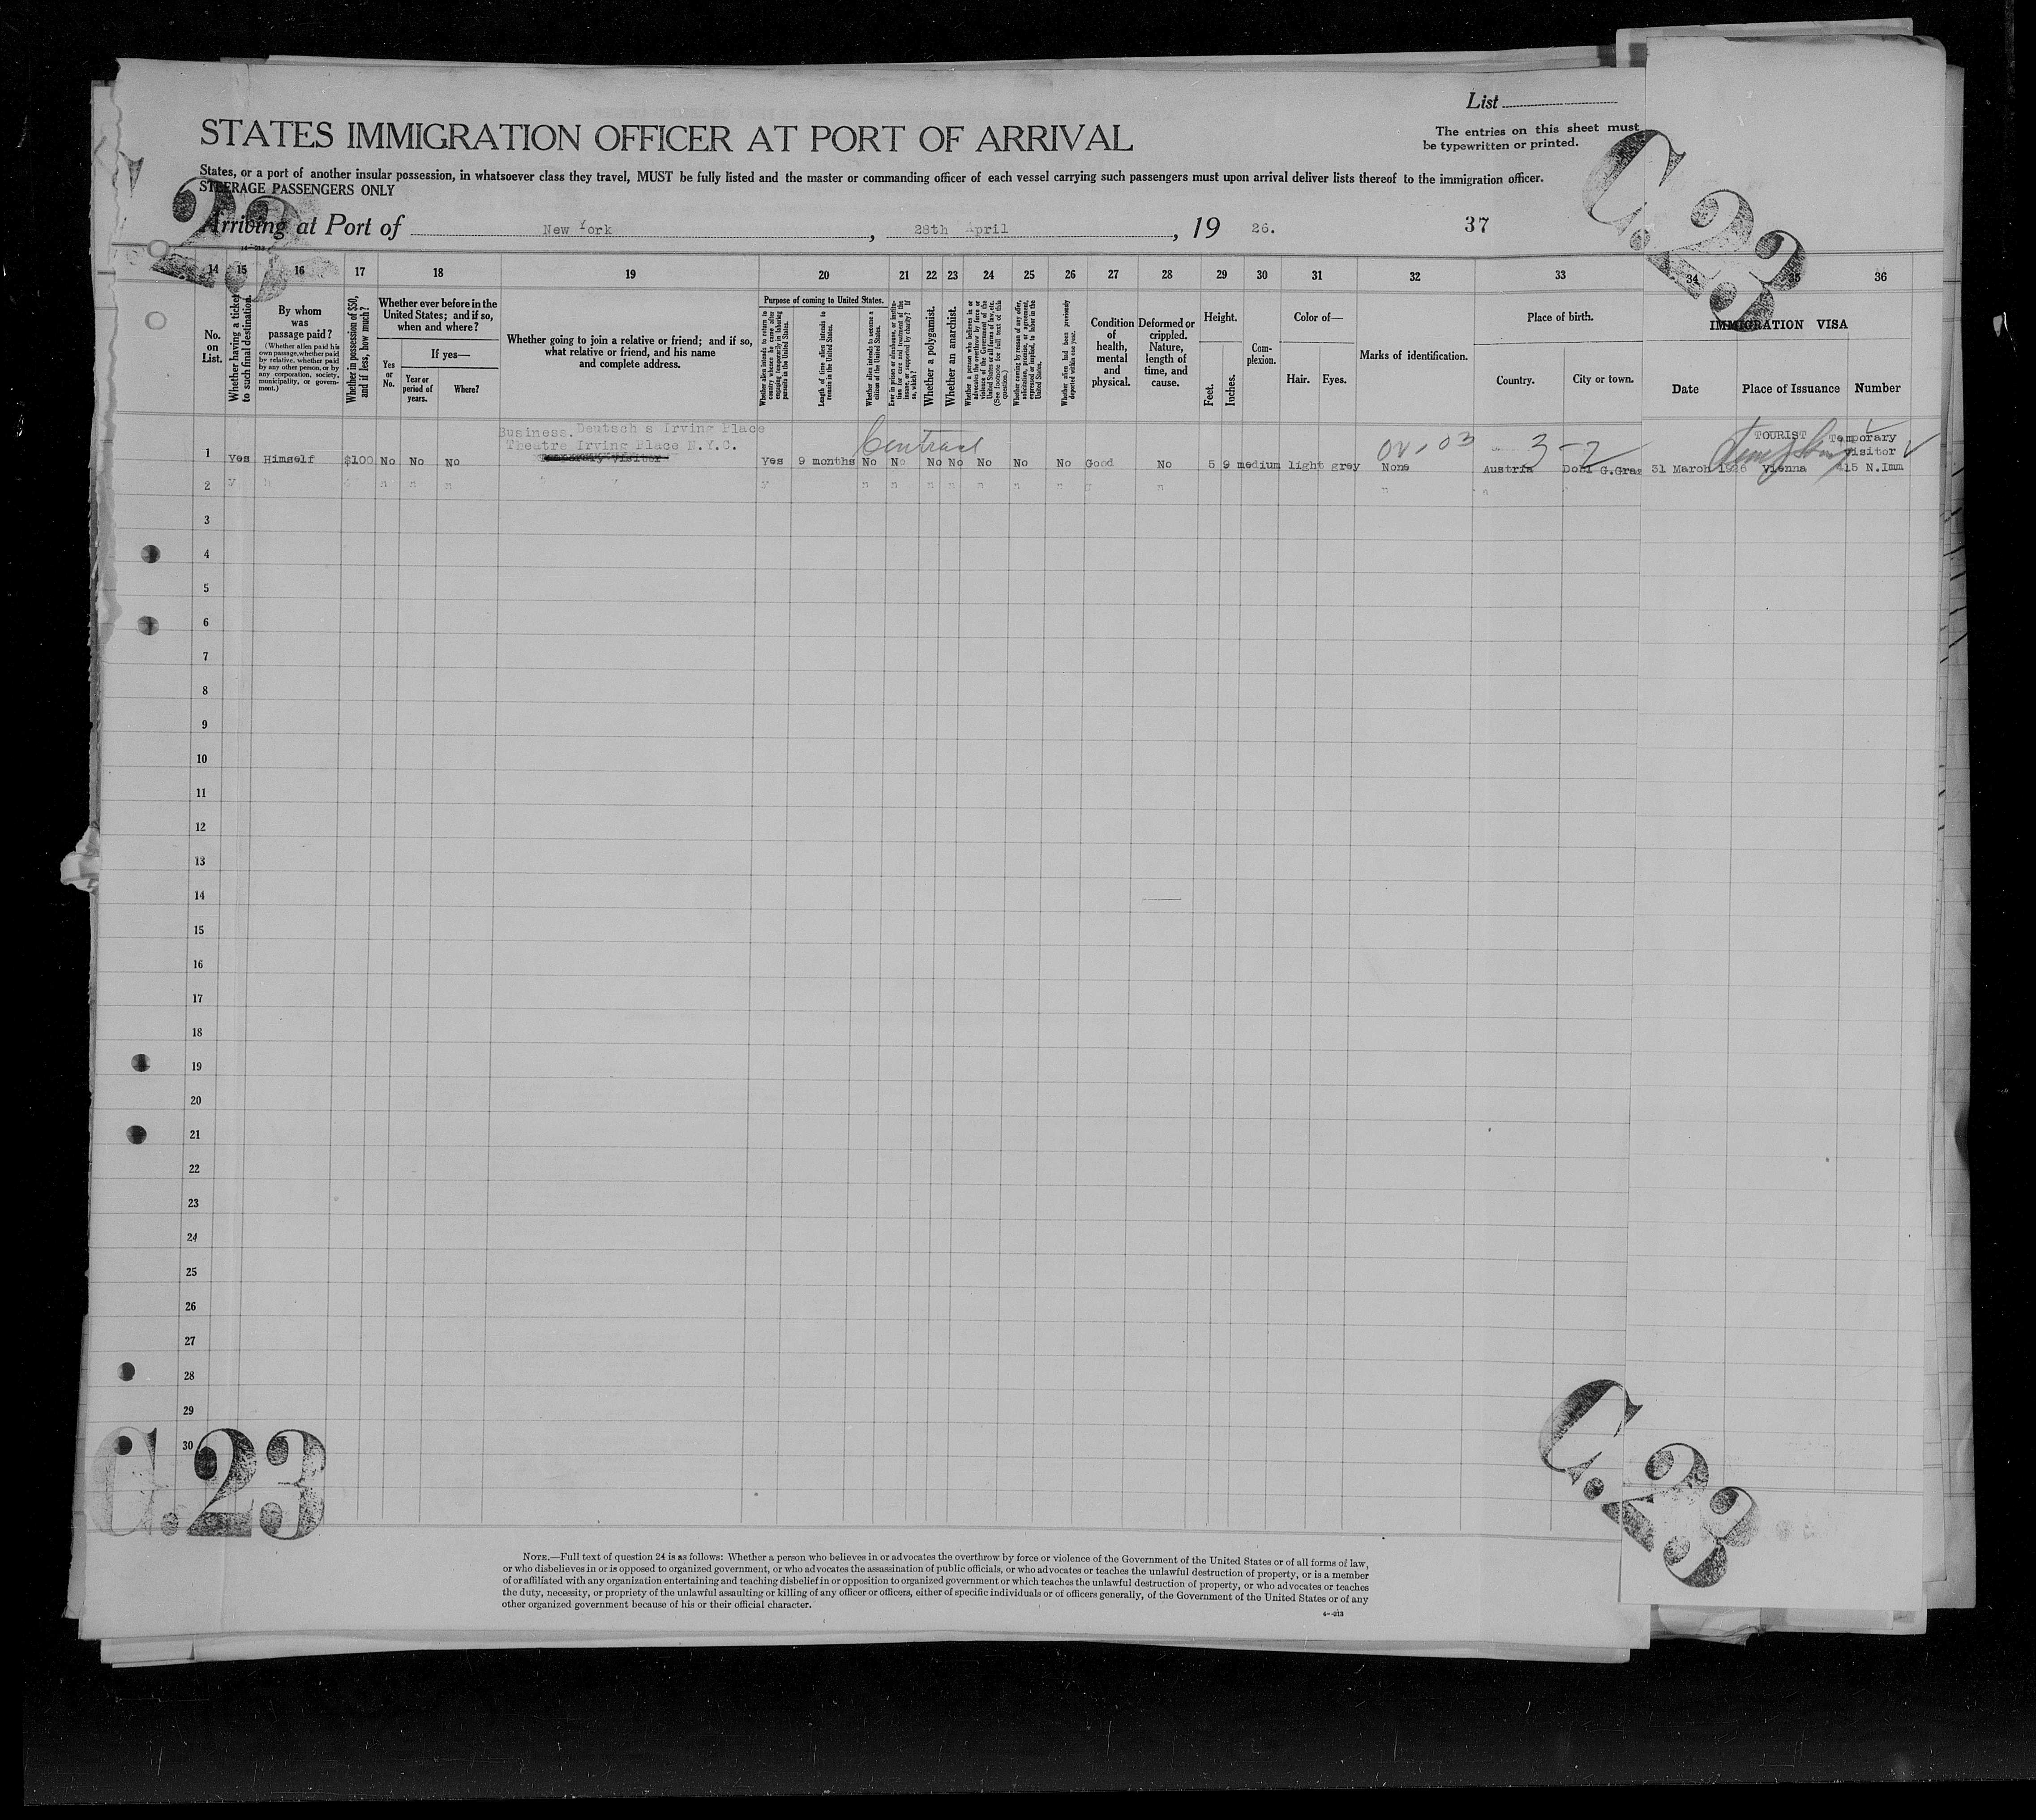 List
STATES IMMIGRATION OFFICER AT PORT OF ARRIVAL
The entries on this sheet must
be typewritten or printed.
States, or a port of another insular possession, in whatsoever class they travel, MUST be fully listed and the master or commanding officer of each vessel carrying such passengers must upon arrival deliver lists thereof to the immigration officer.
STEERAGE PASSENGERS ONLY
23
C.23
Arriving at Port of New York, 28th April, 19 26. 37
14 15 16 17 18 19 20 21 22 23 24 25 26 27 28 29 30 31 32 33 34 35 36
No. on List.
Whether having a ticket to such final destination.
By whom was passage paid?
(Whether alien paid his own passage, whether paid by relative, whether paid by any other person, or by any corporation, society, municipality, or government.)
Whether in possession of $50, and if less, how much?
Whether ever before in the United States; and if so, when and where?
Yes or No.
If yes—
Year or period of years.
Where?
Whether going to join a relative or friend; and if so, what relative or friend, and his name and complete address.
Purpose of coming to United States.
Whether alien intends to return to country whence he came after engaging temporarily in laboring pursuits in the United States.
Length of time alien intends to remain in the United States.
Whether alien intends to become a citizen of the United States.
Ever in prison or almshouse, or institution for care and treatment of the insane, or supported by charity? If so, which?
Whether a polygamist.
Whether an anarchist.
Whether a person who believes in or advocates the overthrow by force or violence of the Government of the United States or all forms of law, etc. (See footnote for full text of this question.)
Whether coming by reason of any offer, solicitation, promise, or agreement, expressed or implied, to labor in the United States.
Whether alien had been previously deported within one year.
Condition of health, mental and physical.
Deformed or crippled. Nature, length of time, and cause.
Height.
Feet.
Inches.
Complexion.
Color of—
Hair.
Eyes.
Marks of identification.
Place of birth.
Country.
City or town.
IMMIGRATION VISA
Date
Place of Issuance
Number
Business. Deutsch s Irving Place
Theatre Irving Place N.Y.C.
Temporary Visitor
Contract
ov. 03
3-2
TOURIST
Temporary
Visitor
1 Yes Himself $100 No No No Yes 9 months No No No No No No No Good No 5 9 medium light grey None Austria Dobl G.Graz 31 March 1926 Vienna 415 N.Imm
2
3
4
5
6
7
8
9
10
11
12
13
14
15
16
17
18
19
20
21
22
23
24
25
26
27
28
29
30
C.23
C.23
NOTE.—Full text of question 24 is as follows: Whether a person who believes in or advocates the overthrow by force or violence of the Government of the United States or of all forms of law,
or who disbelieves in or is opposed to organized government, or who advocates the assassination of public officials, or who advocates or teaches the unlawful destruction of property, or is a member
of or affiliated with any organization entertaining and teaching disbelief in or opposition to organized government or which teaches the unlawful destruction of property, or who advocates or teaches
the duty, necessity, or propriety of the unlawful assaulting or killing of any officer or officers, either of specific individuals or of officers generally, of the Government of the United States or of any
other organized government because of his or their official character.